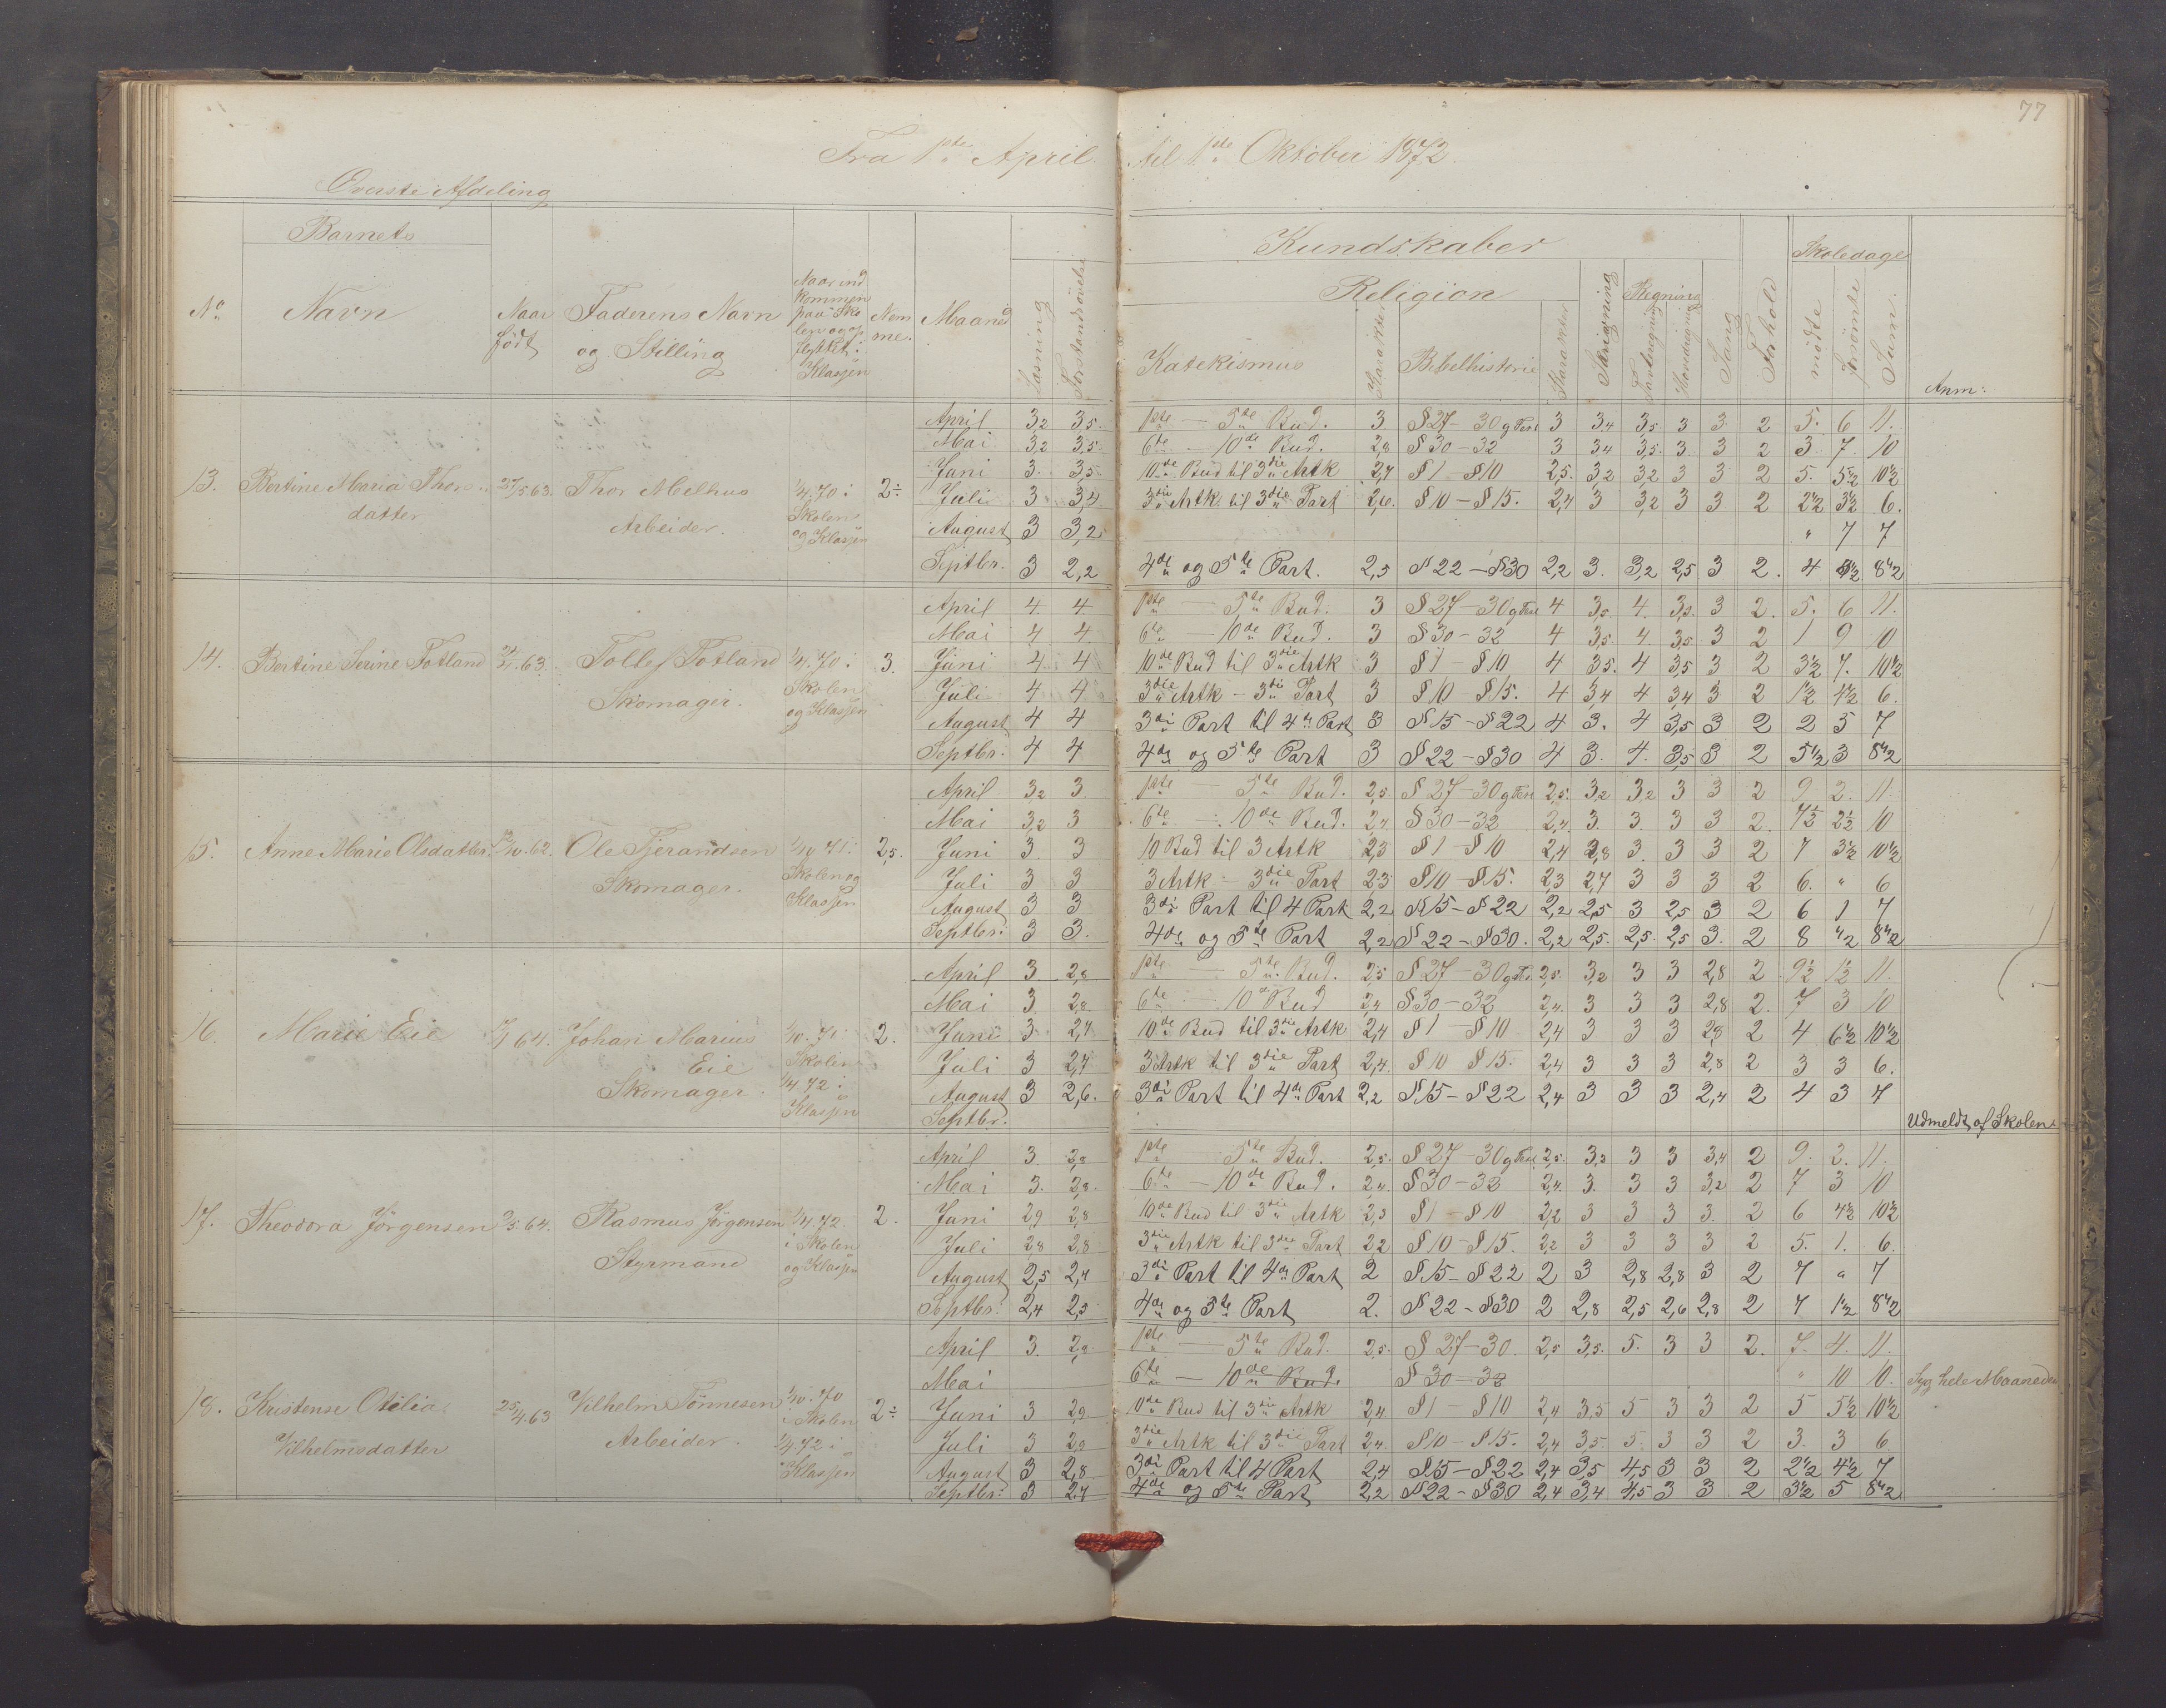 77
Fra 1ste April til 1ste Oktober 1872.
Øverste Afdeling
Barnets
Kundskaber
Skoledage
No
Navn
Naar født
Faderens Navn og Stilling
Naar ind kommen paa Sko len og op flyttet i Klassen
Nem me.
Maaned
Læsning
Forstandsøvelse
Religion
Katekismus
Karakter
Bibelhistorie
Karakter
Skrivning
Regning
Tavleregning
Hovedregning
Sang
Forhold
mødte
forsømte
Sum.
Anm:
13. Bertine Maria Thors datter 27/5.63. Thor Melhus Arbeider. 1/4.70 i Skolen og Klassen 2÷
April 3,2 3,5. 1ste — 5te Bud. 3 § 27-30 g Test 3 3,4 3,5 3 3 2 5. 6 11.
Mai 3,2 3,5 6te — 10de Bud. 2,8 § 30-32 3 3,4 3,5. 3 3 2 3. 7. 10
Juni 3. 3,5 10de Bud til 3die Artk 2,7 § 1 - § 10 2,5. 3,2 3,2 3 3 2 5. 5 1/2 10 1/2
Juli 3 3,4 3die Artk til 3die Part 2,6. § 10 - § 15. 2,4 3 3,2 3 3 2 2 1/2 3 1/2 6.
August 3 3,2 " 7 7
Septbr. 3 2,2 4de og 5te Part. 2,5 § 22 - § 30 2,2 3. 3,2 2,5 3 2. 4 4 1/2 8 1/2
14. Bertine Serine Fotland 63. Tollef Fotland Skomager. 1/4.70 i Skolen og Klassen 3.
April 4. 4 1ste — 5te Bud. 3 § 27-30 g Test 4 3,5. 4. 3,5. 3 2. 5. 6 11.
Mai 4 4 6te — 10de Bud. 3 § 30-32 4 3,5. 4. 3,5. 3 2 1 9 10
Juni 4 4 10de Bud til 3die Artk 3 § 1 - § 10 4 3,5. 4 3,5 3 2 3 1/2 7. 10 1/2
Juli 4 4 3die Artk - 3di Part 3 § 10 - § 15. 4 3,4 4 3,4 3 2 1 1/2 4 1/2 6.
August 4 4 3di Part til 4de Part 3 § 15 - § 22 4 3. 4 3,5 3 2 2 5 7
Septbr. 4 4 4de og 5te Part 3 § 22 - § 30 4 3. 4. 3,5 3 2 5 1/2 3 8 1/2
15. Anne Marie Olsdatter 62. Ole Tjerandsen Skomager. 1/10 71 i Skolen og Klassen 2,5.
April 3,2 3 1ste — 5te Bud. 2,5. § 27-30 g Test 2,5. 3,2 3,2 3 3 2 9 2. 11.
Mai 3,2 3 6te — 10de Bud. 2,4 § 30-32 2,4. 3. 3. 3 3 2. 7 1/2 2 1/2 10
Juni 3. 3 10 Bud til 3 Artk 2,3 § 1 - § 10 2,4 2,8 3. 3 3 2 7 3 1/2 10 1/2
Juli 3 3 3 Artk - 3die Part 2,3 § 10 - § 15. 2,3 2,7 3 3 3 2 6. " 6
August 3 3 3di Part til 4 Part 2,2 § 15 - § 22 2,2 2,5 3 2,5 3 2 6 1 7
Septbr. 3 3. 4de og 5te Part 2,2 § 22 - § 30. 2,2 2,5. 2,5. 2,5 3. 2 8 1/2 8 1/2
16. Marie Eie 64. Johan Marius Eie Skomager. 1/10. 71 i Skolen 1/4 72 i Klassen 2.
April 3 2,8 1ste — 5te Bud. 2,5 § 27-30 2,5. 3,2 3 3 2,8 2 9 1/2 1 1/2 11.
Mai 3. 2,8. 6te — 10de Bud 2,4 § 30-32 2,4. 3 3 3 2,8 2. 7 3 10
Juni 3 2,7 10de Bud til 3die Artk 2,4 § 1 - § 10 2,4 3 3 3 2,8 2 4 6 1/2 10 1/2
Juli 3 2,7 3 Artk til 3die Part 2,4. § 10 § 15. 2,4 3 3 3 2,8 2 3 3 6.
August 3 2,6. 3di Part til 4de Part 2,2 § 15 - § 22 2,4 3 3 3 2,4 2 4 3 7
Septbr. Udmeldt af Skolen.
17. Theodora Jörgensen 64. Rasmus Jörgensen Styrmand 1/4.72 i Skolen og Klassen 2.
April 3 2,8 1ste — 5te Bud. 2,5. § 27-30 g Test 2,5. 3,2 3 3 3,4 2 9. 2. 11.
Mai 3. 2,8. 6te — 10de Bud. 2,4. § 30-32 2,4. 3. 3 3 3,2 2 7 3 10
Juni 2,9 2,8 10de Bud til 3die Artk 2,3 § 1 - § 10 2,2 3 3 3 3. 2 6 4 1/2 10 1/2
Juli 2,8 2,8 3die Artk til 3die Part 2,2 § 10 - § 15. 2,2 3 3 3 3 2 5. 1. 6.
August 2,5 2,4 3di Part til 4de Part 2 § 15 - § 22 2 3 2,8 2,8 3 2 7 " 7
Septbr. 2,4 2,3 4de og 5te Part 2. § 22 - § 30 2 2,8 2,5 2,6 2,8 2 7 1 1/2 8 1/2
18. Kristense Otilia Vilhelmsdatter 25/4.63 Vilhelm Tönnesen Arbeider. 1/10.70 i Skolen 1/4 72 i Klassen 2÷
April 3. 2,9. 1ste — 5te Bud. 2,5. § 27-30. 2,5 3,5. 5. 3 3 2. 7. 4. 11.
Mai 6te — 10de Bud. § 30-32 " 10 10. Syg hele Maaneden
Juni 3 2,9 10de Bud til 3die Artk 2,4. § 1 - § 10 2,4 3,5 5 3 3 2 5 5 1/2 10 1/2
Juli 3 2,9 3die Artk til 3die Part 2,4. § 10 - § 15. 2,4 3,5. 5. 3 3 2 3. 3 6
August 3 2,8 3di Part til 4 Part 2,4 § 15 - § 22 2,4 3,5 4,5 3 3 2 2 1/2 4 1/2 7
Septbr. 3 2,7 4de og 5te Part 2,2 § 22 - § 30 2,4 3,4 4,5 3 3 2 3 1/2 5 8 1/2